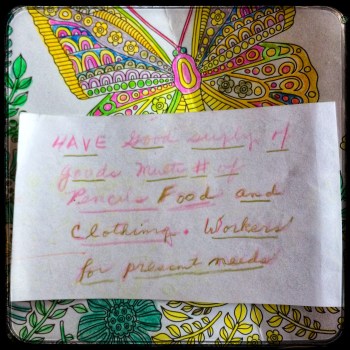 HAVE Good supply of
goods Multi # of
Pencils Food and
Clothing. Workers
for present needs